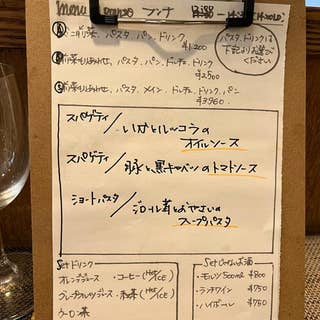 menu ランチ
パスタ、パン、ドリンク
¥1,200
パスタ、パン、ドルチェ、ドリンク
¥2,500
パスタ、メイン、ドルチェ、ドリンク、パン
¥3,960
パスタ、ドリンクは
下記よりお選び
ください
スパゲティ/いかとルッコラの
オイルソース
スパゲティ/豚と黒キャベツのトマトソース
ショートパスタ/
スープパスタ
Setドリンク
オレンジジュース・コーヒー(Hot/ICE)
グレープフルーツジュース・紅茶(Hot/ICE)
ウーロン茶
・モルツ500ml ¥800
・ランチワイン ¥750
・ハイボール ¥750